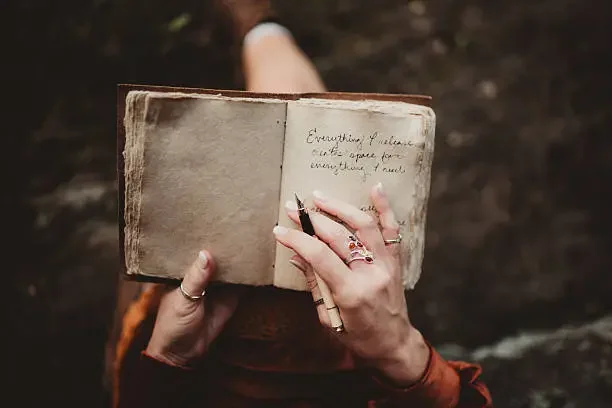 Everything I release
creates space for
everything I need